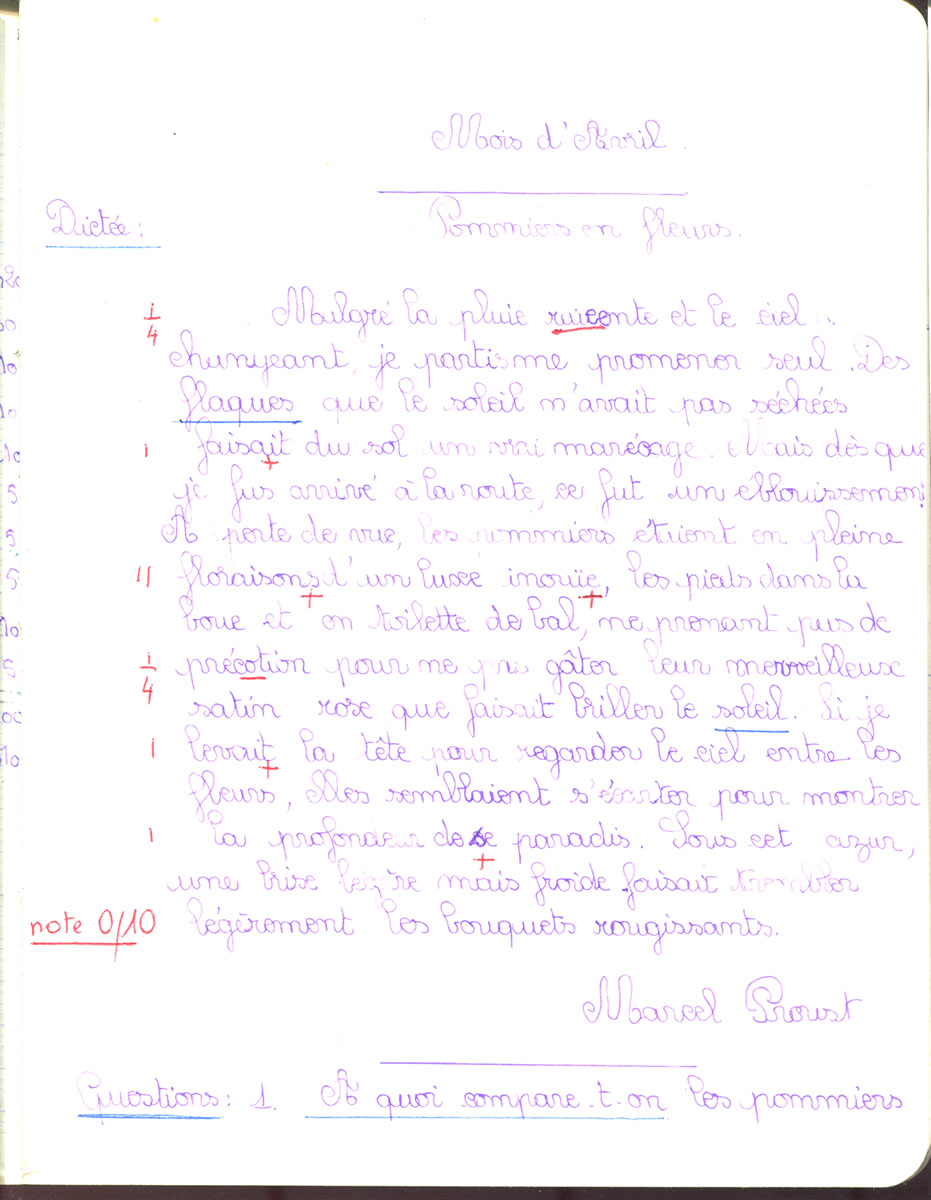 Mois d'Avril.
Dictée : Pommiers en fleurs.
Malgré la pluie et le ciel
changeant, je partis me promener seul. Des
flaques que le soleil n'avait pas séchées
faisait du sol un vrai marécage. Mais dès que
je fus arrivé à la route, ce fut un éblouissement
A perte de vue, les pommiers étaient en pleine
floraisons d'un luxe inouïe, les pieds dans la
boue et en toilette de bal, ne prenant pas de
précotion pour ne pas gâter leur merveilleux
satin rose que faisait briller le soleil. Si je
levait la tête pour regarder le ciel entre les
fleurs, elles semblaient s'écarter pour montrer
la profondeur de se paradis. Sous cet azur,
une brise légère mais froide faisait trembler
note 0/10 légèrement les bouquets rougissants.
Marcel Proust
Questions : 1. A quoi compare-t-on les pommiers